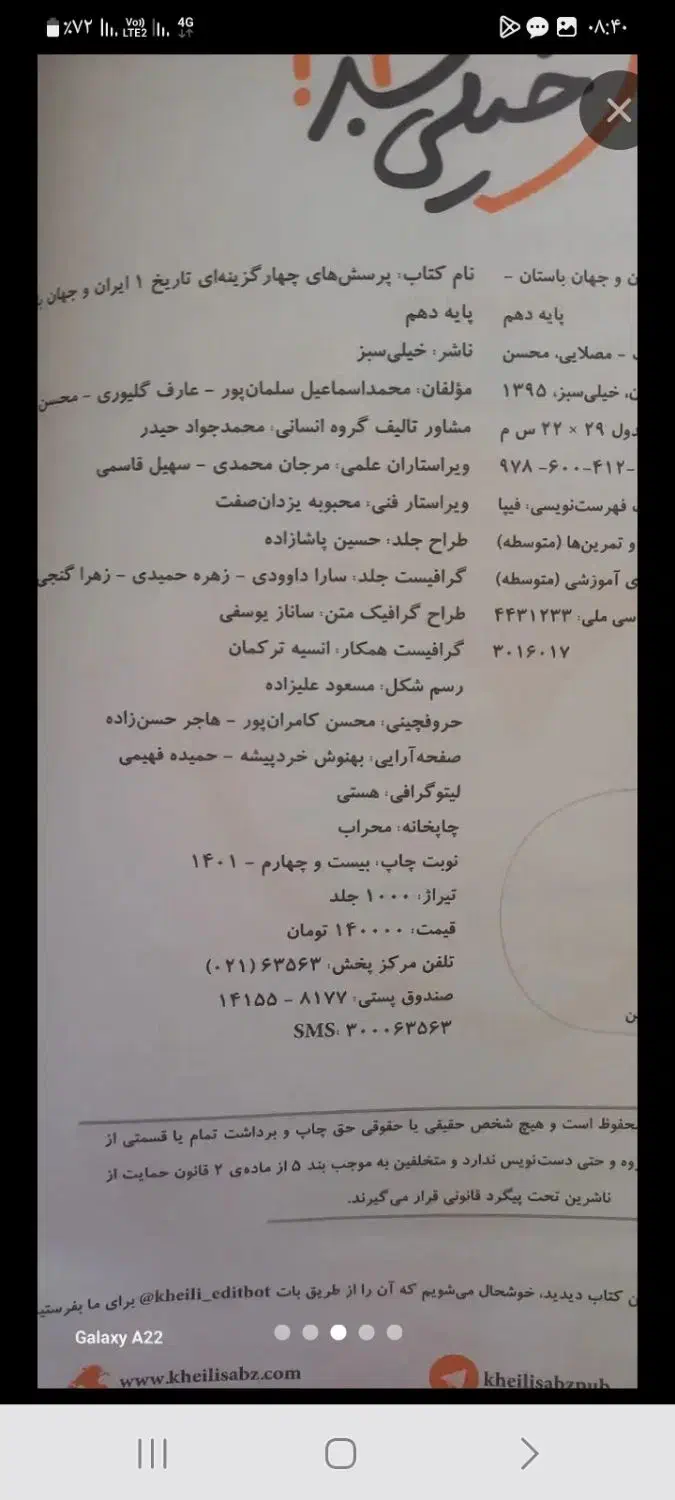 ٪۷۲ Vo)) LTE2 4G ۰۸:۴۰
خیلی سبز
نام کتاب: پرسش‌های چهارگزینه‌ای تاریخ ۱ ایران و جهان
پایه دهم
ناشر: خیلی‌سبز
مؤلفان: محمداسماعیل سلمان‌پور – عارف گلیوری – محسن
مشاور تالیف گروه انسانی: محمدجواد حیدر
ویراستاران علمی: مرجان محمدی – سهیل قاسمی
ویراستار فنی: محبوبه یزدان‌صفت
طراح جلد: حسین پاشازاده
گرافیست جلد: سارا داوودی – زهره حمیدی – زهرا گنجی
طراح گرافیک متن: ساناز یوسفی
گرافیست همکار: انسیه ترکمان
رسم شکل: مسعود علیزاده
حروفچینی: محسن کامران‌پور – هاجر حسن‌زاده
صفحه‌آرایی: بهنوش خردپیشه – حمیده فهیمی
لیتوگرافی: هستی
چاپخانه: محراب
نوبت چاپ: بیست و چهارم – ۱۴۰۱
تیراژ: ۱۰۰۰ جلد
قیمت: ۱۴۰۰۰۰ تومان
تلفن مرکز پخش: ۶۳۵۶۳ (۰۲۱)
صندوق پستی: ۸۱۷۷ – ۱۴۱۵۵
SMS: ۳۰۰۰۶۳۵۶۳
و جهان باستان –
پایه دهم
– مصلایی، محسن
خیلی‌سبز، ۱۳۹۵
۲۹ × ۲۲ س م
۹۷۸-۶۰۰-۴۱۲-
فهرست‌نویسی: فیپا
و تمرین‌ها (متوسطه)
آموزشی (متوسطه)
ملی: ۴۴۳۱۲۳۳
۳۰۱۶۰۱۷
محفوظ است و هیچ شخص حقیقی یا حقوقی حق چاپ و برداشت تمام یا قسمتی از
و حتی دست‌نویس ندارد و متخلفین به موجب بند ۵ از ماده‌ی ۲ قانون حمایت از
ناشرین تحت پیگرد قانونی قرار می‌گیرند.
کتاب دیدید، خوشحال می‌شویم که آن را از طریق بات @kheili_editbot برای ما بفرستید
Galaxy A22
www.kheilisabz.com
kheilisabzpub